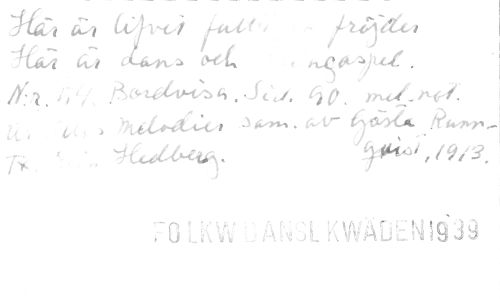 Här är lifvet fullt fröjder
Här är dans och ngaspel.
N:r. 54. Bordvisa. Sid. 90. med not.
Melodier sam. av Gösta Runn-
Hedberg. quist, 1913.
FOLKW DANSLKWÄDEN1939